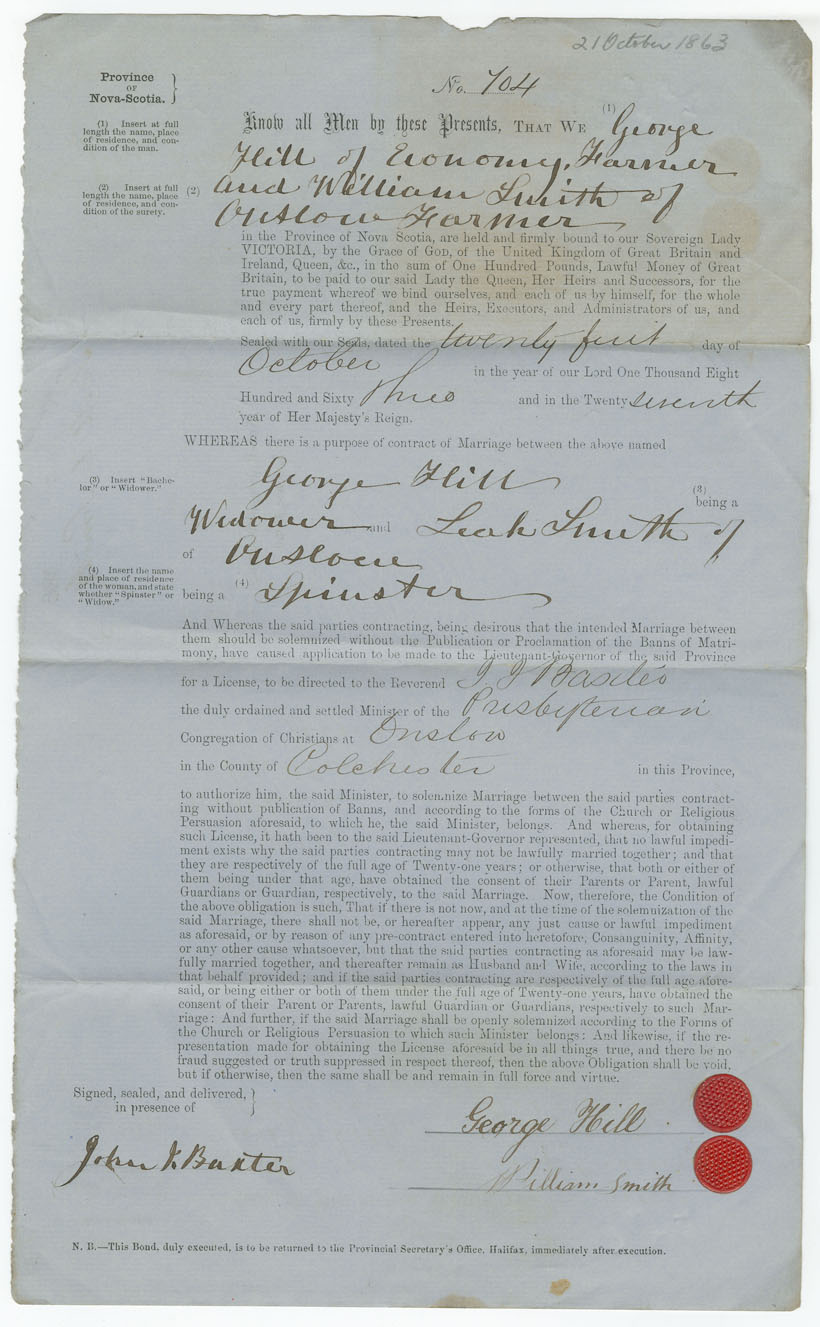 21 October 1863
Province
OF
Nova-Scotia.
No. 704
(1) Insert at full
length the name, place
of residence, and con-
dition of the man.
Know all Men by these Presents, THAT WE (1) George
Hill of Economy, Farmer
(2) Insert at full
length the name, place
of residence, and con-
dition of the surety.
(2) and William Smith of
Onslow Farmer
in the Province of Nova Scotia, are held and firmly bound to our Sovereign Lady
VICTORIA, by the Grace of GOD, of the United Kingdom of Great Britain and
Ireland, Queen, &c., in the sum of One Hundred Pounds, Lawful Money of Great
Britain, to be paid to our said Lady the Queen, Her Heirs and Successors, for the
true payment whereof we bind ourselves, and each of us by himself, for the whole
and every part thereof, and the Heirs, Executors, and Administrators of us, and
each of us, firmly by these Presents.
Sealed with our Seals, dated the twenty first day of
October in the year of our Lord One Thousand Eight
Hundred and Sixty Three and in the Twenty seventh
year of Her Majesty's Reign.
WHEREAS there is a purpose of contract of Marriage between the above named
(3) Insert "Bache-
lor" or "Widower."
George Hill (3) being a
Widower and Leah Smith of
of Onslow
(4) Insert the name
and place of residence
of the woman, and state
whether "Spinster" or
"Widow."
being a (4) Spinster
And Whereas the said parties contracting, being desirous that the intended Marriage between
them should be solemnized without the Publication or Proclamation of the Banns of Matri-
mony, have caused application to be made to the Lieutenant-Governor of the said Province
for a License, to be directed to the Reverend
the duly ordained and settled Minister of the Presbyterian
Congregation of Christians at Onslow
in the County of Colchester in this Province,
to authorize him, the said Minister, to solemnize Marriage between the said parties contract-
ing without publication of Banns, and according to the forms of the Church or Religious
Persuasion aforesaid, to which he, the said Minister, belongs. And whereas, for obtaining
such License, it hath been to the said Lieutenant-Governor represented, that no lawful impedi-
ment exists why the said parties contracting may not be lawfully married together; and that
they are respectively of the full age of Twenty-one years; or otherwise, that both or either of
them being under that age, have obtained the consent of their Parents or Parent, lawful
Guardians or Guardian, respectively, to the said Marriage. Now, therefore, the Condition of
the above obligation is such, That if there is not now, and at the time of the solemnization of the
said Marriage, there shall not be, or hereafter appear, any just cause or lawful impediment
as aforesaid, or by reason of any pre-contract entered into heretofore, Consanguinity, Affinity,
or any other cause whatsoever, but that the said parties contracting as aforesaid may be law-
fully married together, and thereafter remain as Husband and Wife, according to the laws in
that behalf provided; and if the said parties contracting are respectively of the full age afore-
said, or being either or both of them under the full age of Twenty-one years, have obtained the
consent of their Parent or Parents, lawful Guardian or Guardians, respectively to such Mar-
riage: And further, if the said Marriage shall be openly solemnized according to the Forms of
the Church or Religious Persuasion to which such Minister belongs: And likewise, if the re-
presentation made for obtaining the License aforesaid be in all things true, and there be no
fraud suggested or truth suppressed in respect thereof, then the above Obligation shall be void,
but if otherwise, then the same shall be and remain in full force and virtue.
Signed, sealed, and delivered,
in presence of
George Hill
John I. Baxter
William Smith
N. B.—This Bond, duly executed, is to be returned to the Provincial Secretary's Office, Halifax, immediately after execution.